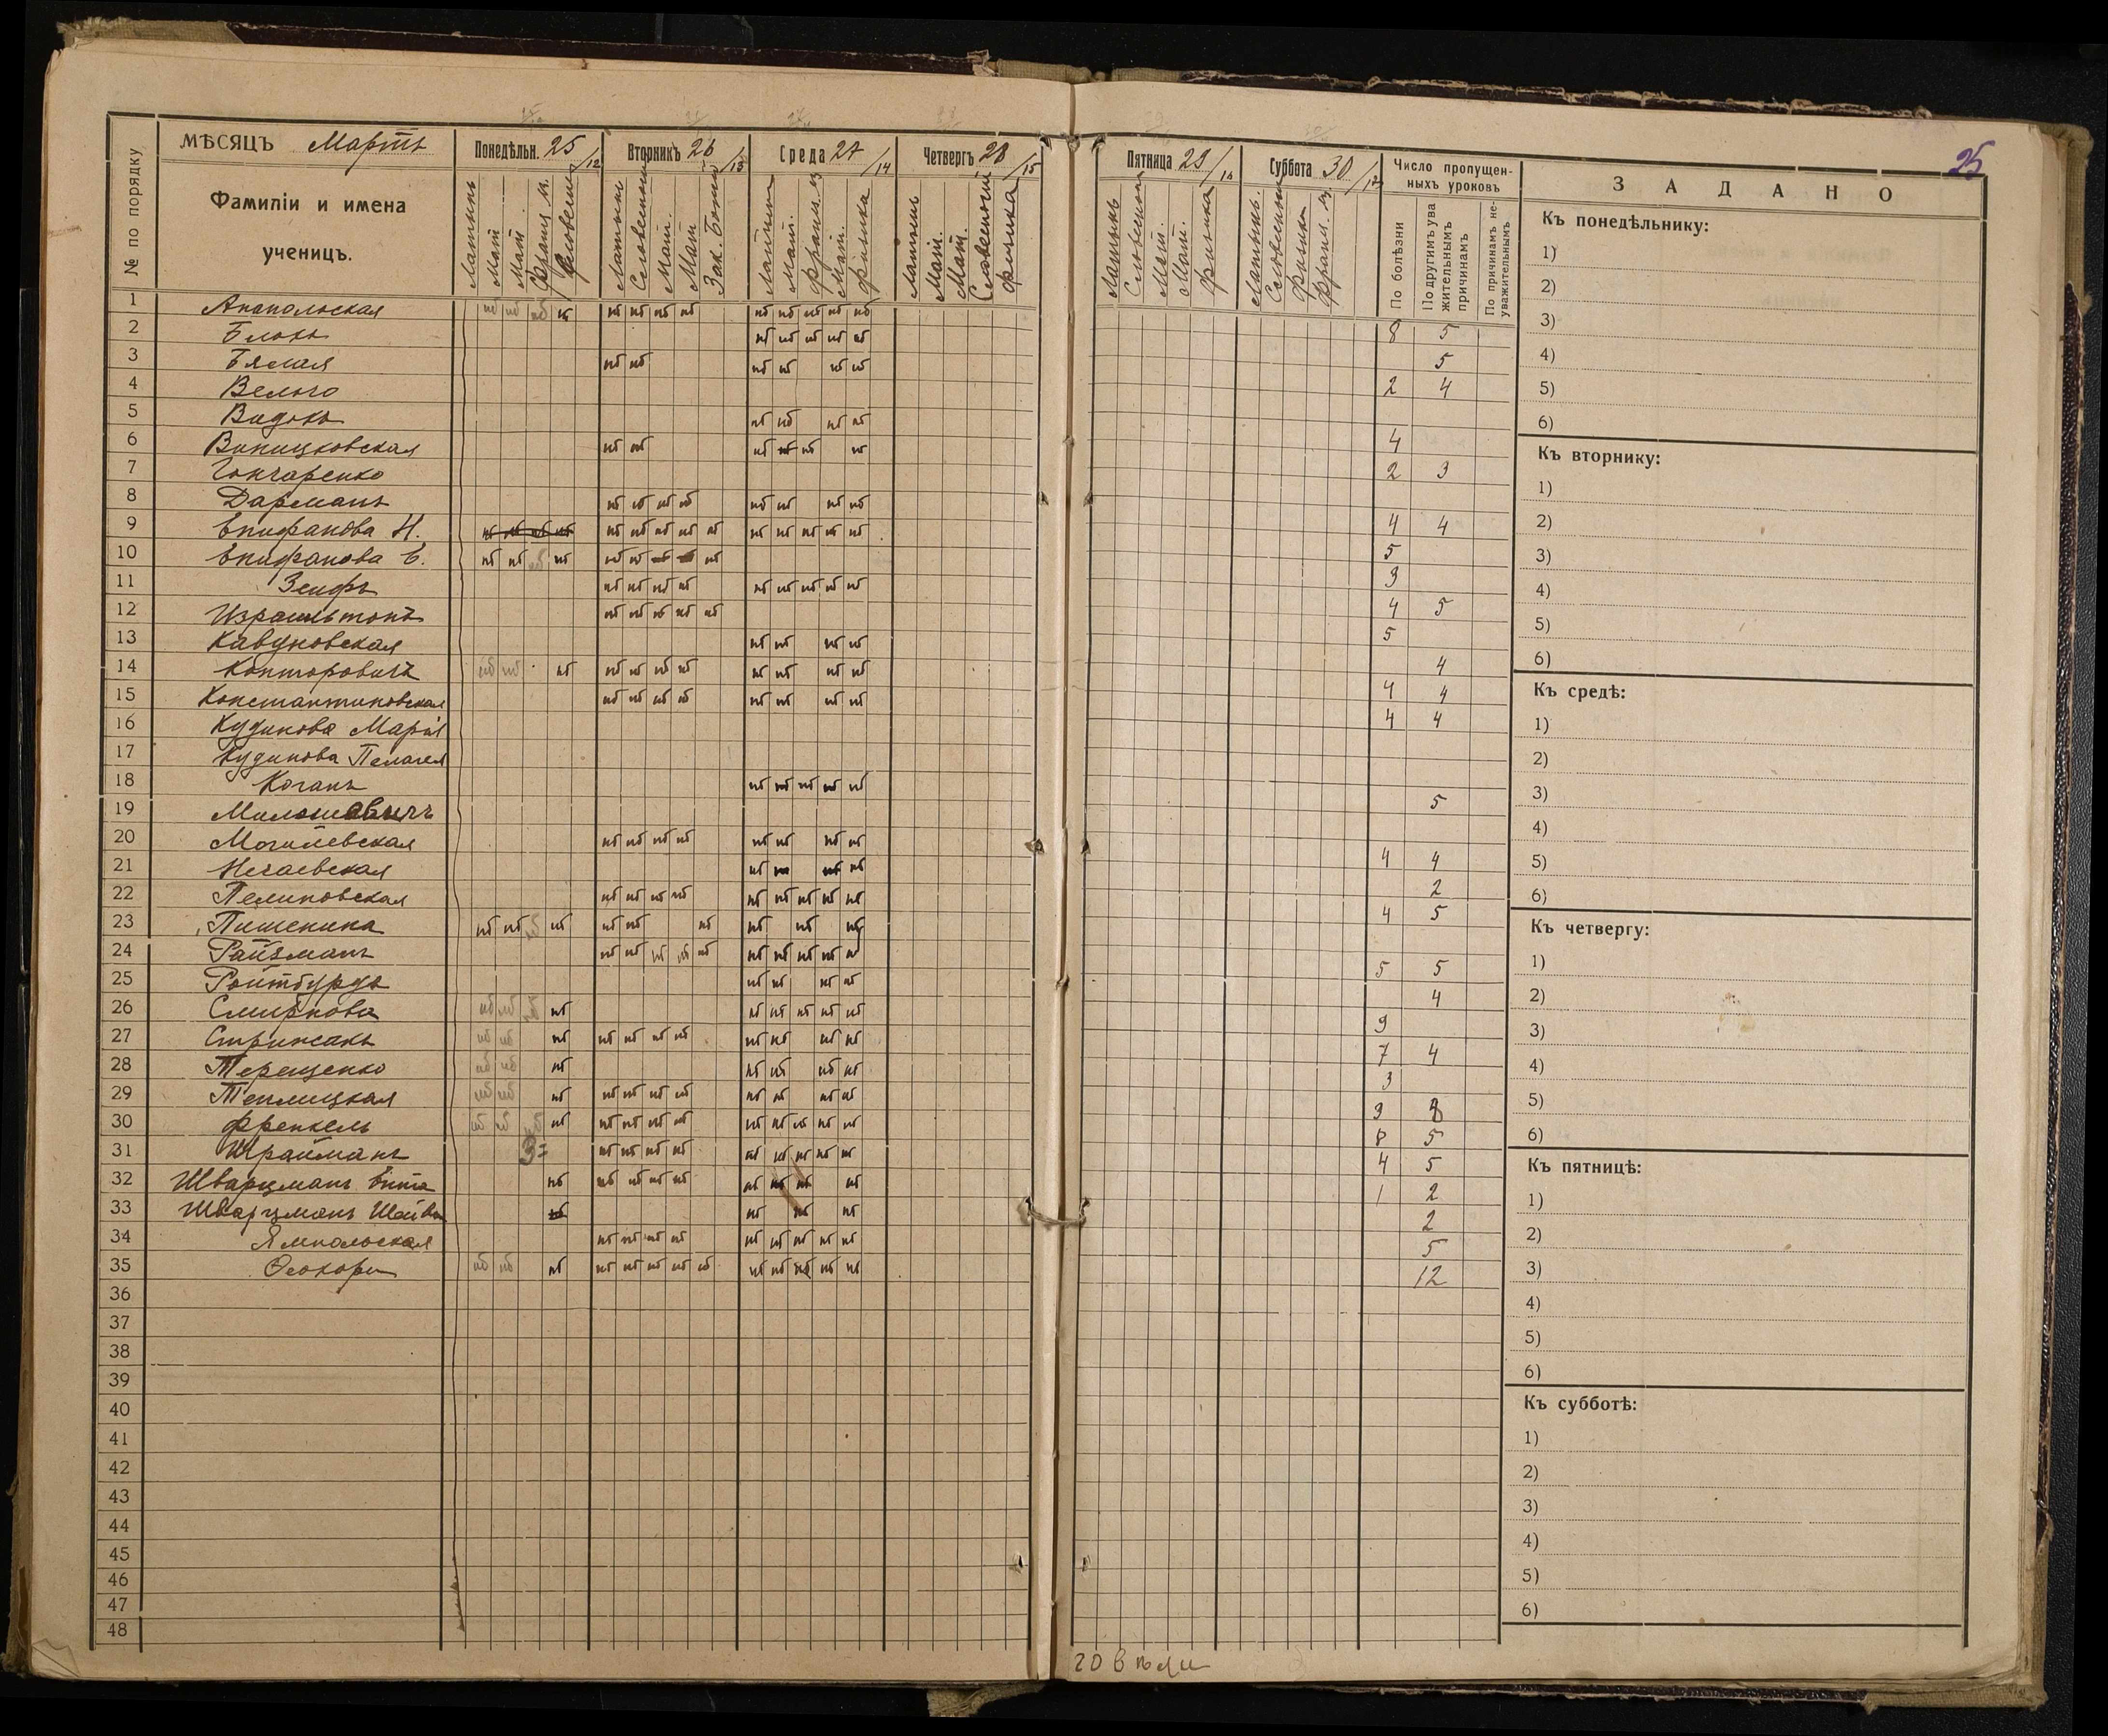 25
№ по порядку
МѢСЯЦЪ Мартъ
Фамиліи и имена
ученицъ.
Понедѣльн. 25/12
Латынь
Мат.
Мат.
Франц. яз.
Словесн.
Вторникъ 26/13
Латынь
Словесность
Мат.
Мат.
Зак. Божій
Среда 27/14
Латынь
Мат.
Франц. яз
Мат.
Физика
Четвергъ 28/15
Латынь
Мат.
Мат.
Словесность
Физика
Пятница 29/16
Латынь
Словесность
Мат.
Мат.
Физика
Суббота 30/17
Латынь.
Словесность
Физика
Франц. яз.
Число пропущен-
ныхъ уроковъ
По болѣзни
По другимъ ува
жительнымъ
причинамъ
По причинамъ не-
уважительнымъ
ЗАДАНО
1 Анапольская нб нб нб нб нб нб нб нб нб нб нб нб нб 8 5
2 Блохъ нб нб нб нб нб 5
3 Бялая нб нб нб нб нб нб 2 4
4 Велъго
5 Видокъ нб нб нб нб 4
6 Виницковская нб нб нб нб нб нб 2 3
7 Гончаренко
8 Дарманъ нб нб нб нб нб нб нб нб 4 4
9 Епифанова Н. нб нб нб нб нб нб нб нб нб нб нб нб нб нб 5
10 Епифанова Е. нб нб нб нб нб нб нб 3
11 Зеифъ нб нб нб нб нб нб нб нб нб 4 5
12 Израильтонъ нб нб нб нб нб 5
13 Кавуновская нб нб нб нб 4
14 Канторовичъ нб нб нб нб нб нб нб нб нб нб нб 4 4
15 Константиновская нб нб нб нб нб нб нб нб 4 4
16 Кудинова Марія
17 Кудинова Пелагея
18 Коганъ нб нб нб нб нб 5
19 Милошевичъ
20 Могилевская нб нб нб нб нб нб нб нб 4 4
21 Нечаевская нб нб нб нб 2
22 Пелиновская нб нб нб нб нб нб нб нб нб 4 5
23 Пишенина нб нб нб нб нб нб нб нб нб нб
24 Райзманъ нб нб нб нб нб нб нб нб нб нб 5 5
25 Ройтбурдъ нб нб нб нб 4
26 Смирнова нб нб нб нб нб нб нб нб нб 9
27 Стрижакъ нб нб нб нб нб нб нб нб нб нб нб 7 4
28 Терещенко нб нб нб нб нб нб нб 3
29 Теплицкая нб нб нб нб нб нб нб нб нб нб нб
30 Френкель нб нб нб нб нб нб нб нб нб нб нб нб нб 8 5
31 Шрайманъ 3= нб нб нб нб нб нб нб нб нб 4 5
32 Шварцманъ нб нб нб нб нб нб нб нб нб 1 2
33 Шварцманъ нб нб нб нб 2
34 Ямпольская нб нб нб нб нб нб нб нб нб 5
35 нб нб нб нб нб нб нб нб нб нб нб нб нб 12
36
37
38
39
40
41
42
43
44
45
46
47
48
Къ понедѣльнику:
1)
2)
3)
4)
5)
6)
Къ вторнику:
1)
2)
3)
4)
5)
6)
Къ средѣ:
1)
2)
3)
4)
5)
6)
Къ четвергу:
1)
2)
3)
4)
5)
6)
Къ пятницѣ:
1)
2)
3)
4)
5)
6)
Къ субботѣ:
1)
2)
3)
4)
5)
6)